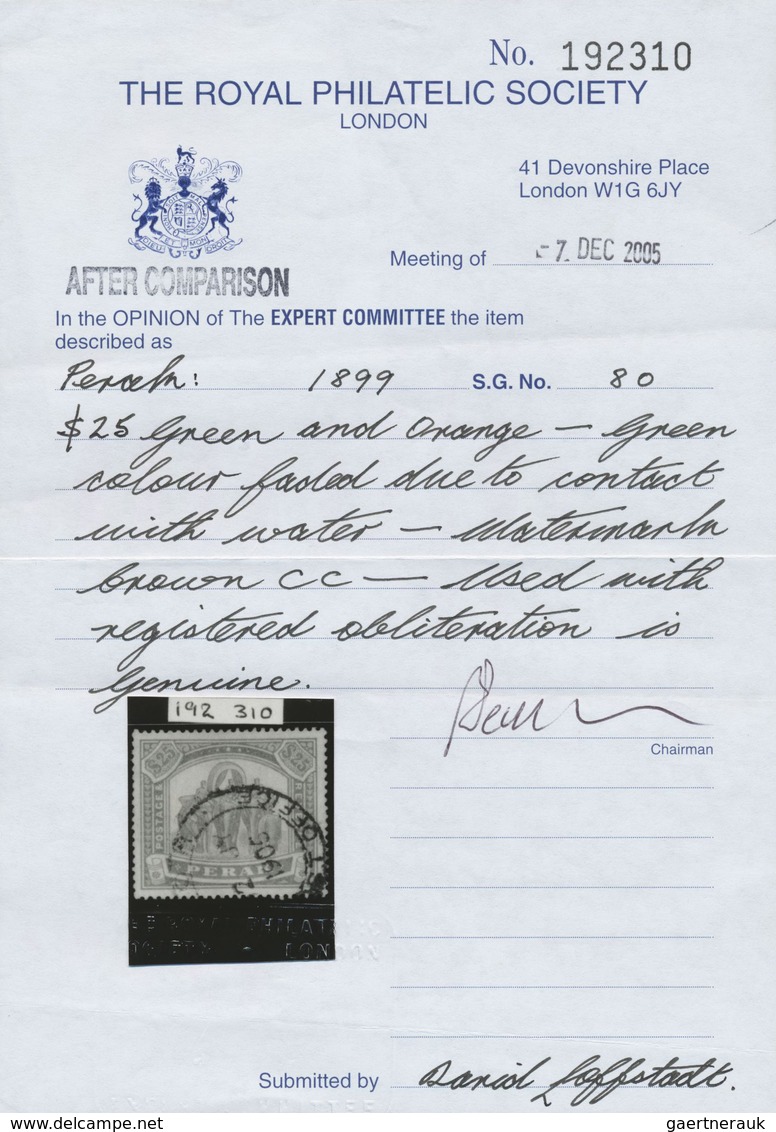 No. 192310
THE ROYAL PHILATELIC SOCIETY
LONDON
41 Devonshire Place
London W1G 6JY
Meeting of -7. DEC 2005
AFTER COMPARISON
In the OPINION of The EXPERT COMMITTEE the item
described as
Perak: 1899 S.G. No. 80
$25 Green and Orange — Green
colour faded due to contact
with water — Watermark
Crown CC — Used with
registered obliteration is
Genuine.
Chairman
192 310
$25 $25
POSTAGE
OFFICE
1905
PERAK
ROYAL PHILATELIC
SOCIETY - LONDON
Submitted by David Loffstadt.
delcampe.net
gaertnerauk